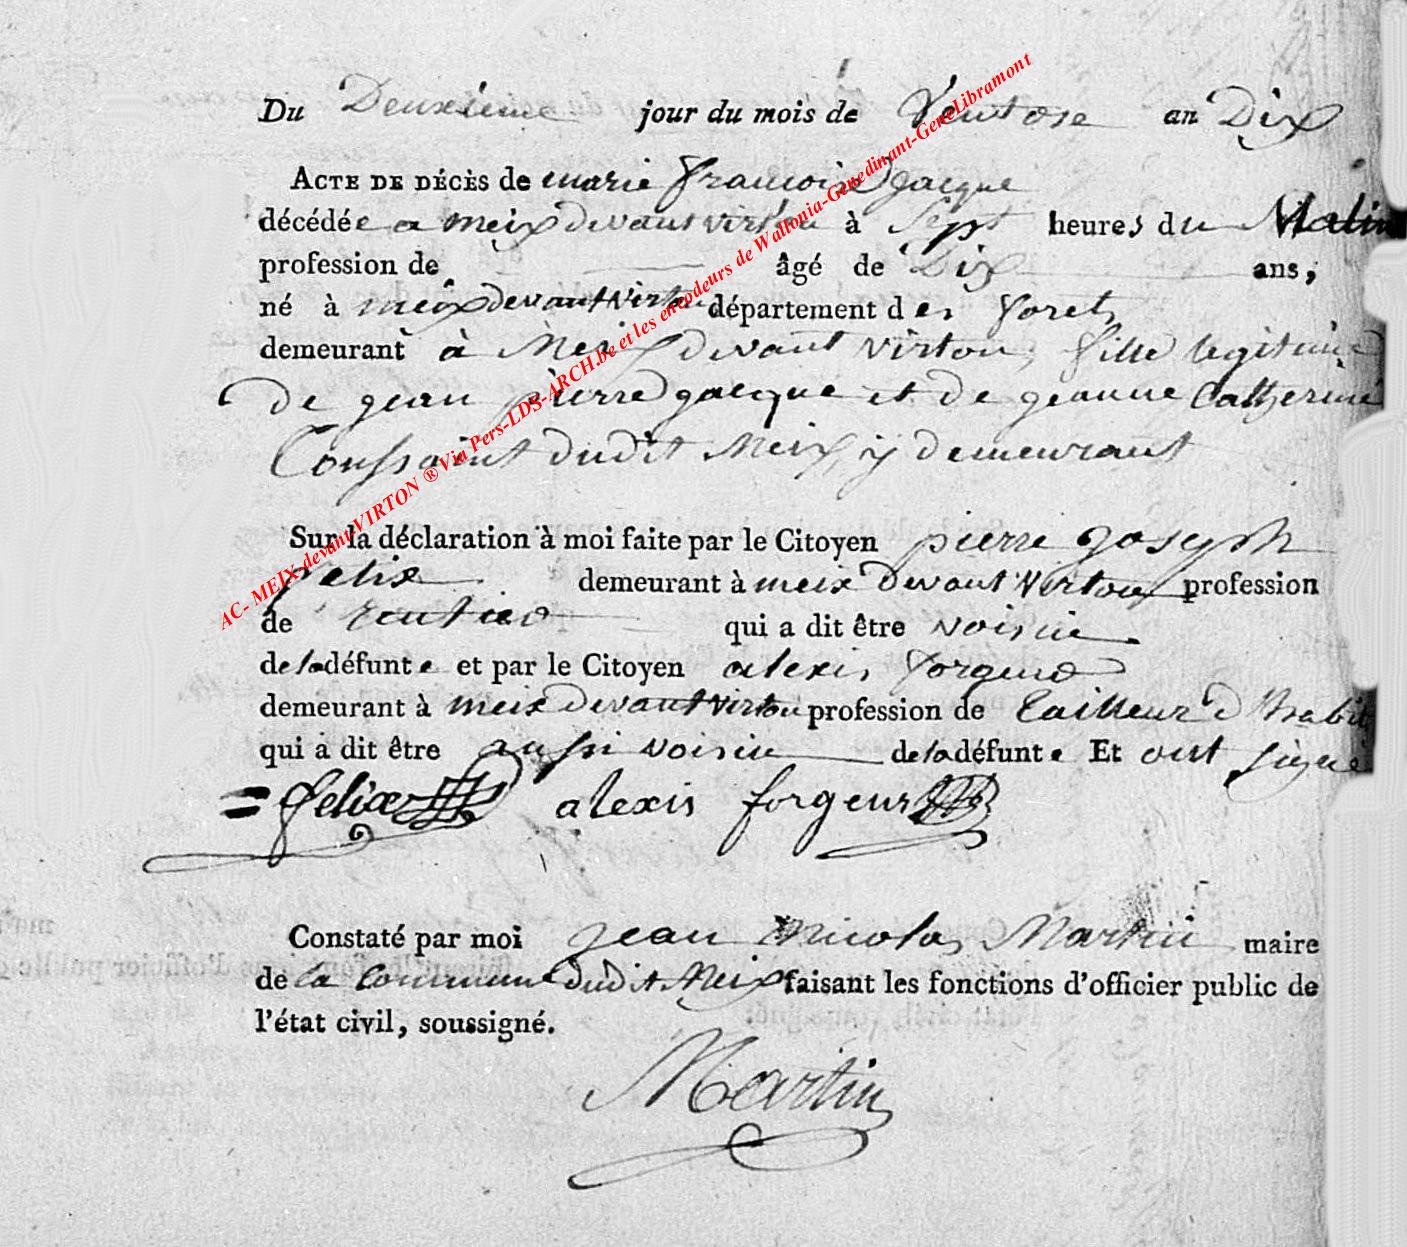 Du Deuxieme jour du mois de Ventose an Dix
ACTE DE DÉCÈS de marie francoise jacque
décédée a meix devant virton à Sept heures du Matin
profession de âgé de Dix ans,
né à meix devant virton département des foret
demeurant à Meix devant virton, fille legitime
De jean pierre jacque et de jeanne Catherine
Toussaint dudit Meix, y demeurant
Sur la déclaration à moi faite par le Citoyen pierre joseph
felix demeurant à meix devant virton profession
de rentier qui a dit être voisin
de la défunte et par le Citoyen alexis forgeur
demeurant à meix devant virton profession de tailleur d'habit
qui a dit être aussi voisin de la défunte Et ont signé
= felix alexis forgeur
Constaté par moi jean nicolas Martin maire
de la Commune dudit Meix faisant les fonctions d'officier public de
l'état civil, soussigné.
Martin
AC- MEIX-devant-VIRTON ® Via Pers-LDS-ARCH.be et les encodeurs de Wallonia-Genedinant-GeneLibramont